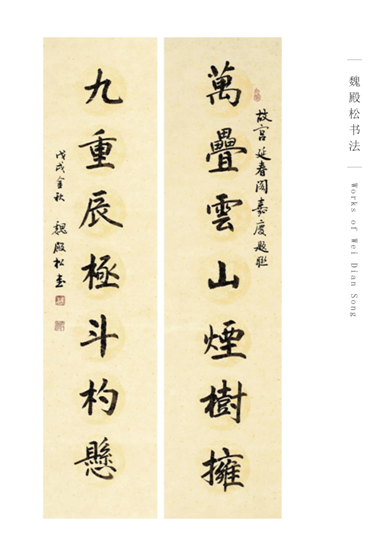 魏殿松书法
Works of Wei Dian Song
故宫延春阁嘉庆题联
萬疊雲山煙樹擁
九重辰極斗杓懸
戊戌金秋 魏殿松书